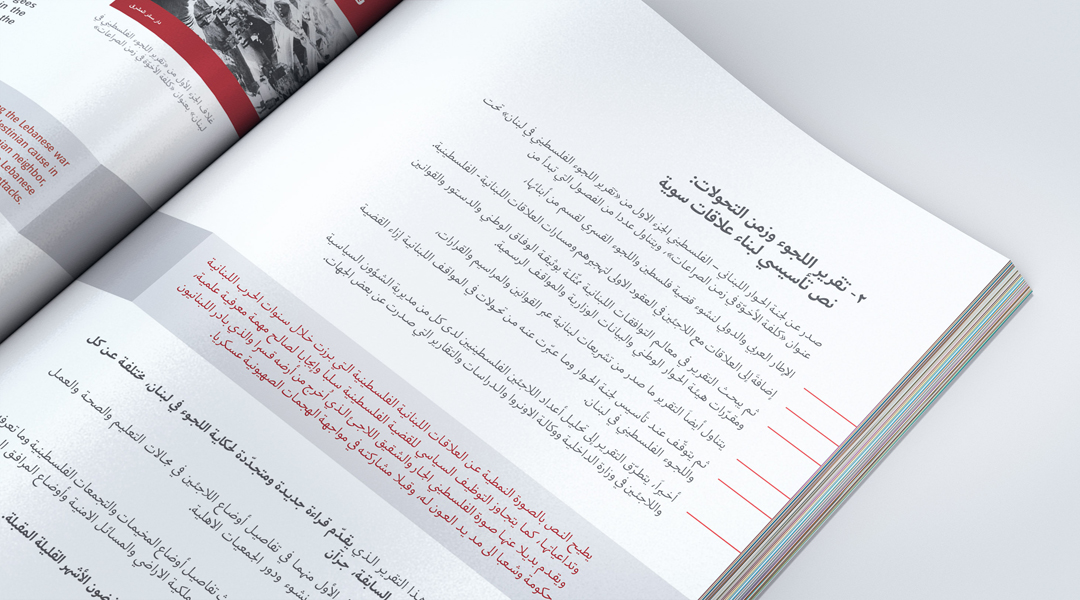 ٢- تقرير اللجوء وزمن التحولات:
نص تأسيسي لبناء علاقات سوية
صدر عن لجنة الحوار اللبناني - الفلسطيني الجزء الاول من «تقرير اللجوء الفلسطيني في لبنان» تحت
عنوان «كلفة الأخوّة في زمن الصراعات»، ويتناول عددا من الفصول التي تبدأ من
الاطار العربي والدولي لنشوء قضية فلسطين واللجوء القسري لقسم من أبنائها،
إضافة إلى العلاقات مع اللاجئين في العقود الاولى لتهجيرهم ومسارات العلاقات اللبنانية - الفلسطينية.
ثم يبحث التقرير في معالم التوافقات اللبنانية ممثّلة بوثيقة الوفاق الوطني والدستور والقوانين
ومقرّرات هيئة الحوار الوطني والبيانات الوزارية والمواقف الرسمية.
يتناول أيضاً التقرير ما صدر من تشريعات لبنانية عبر القوانين والمراسيم والقرارات،
ثم يتوقّف عند تأسيس لجنة الحوار وما عبّرت عنه من تحولات في المواقف اللبنانية إزاء القضية
واللجوء الفلسطيني في لبنان.
أخيراً، يتطرّق التقرير إلى تحليل أعداد اللاجئين الفلسطينيين لدى كل من مديرية الشؤون السياسية
واللاجئين في وزارة الداخلية ووكالة الاونروا والدراسات والتقارير التي صدرت عن بعض الجهات.
يطيح النص بالصورة النمطية عن العلاقات اللبنانية الفلسطينية التي برزت خلال سنوات الحرب اللبنانية
وتداعياتها، كما يتجاوز التوظيف السياسي للقضية الفلسطينية سلبا وإيجابا لصالح مهمّة معرفية علمية،
ويقدم بديلا عنها صورة الفلسطيني الجار والشقيق اللاجئ الذي أخرج من أرضه قسرا والذي بادر اللبنانيون
حكومة وشعبا الى مد يد العون له، وقبلا مشاركته في مواجهة الهجمات الصهيونية عسكريا.
هذا التقرير الذي يقدّم قراءة جديدة ومتجدّدة لحكاية اللجوء في لبنان، مختلفة عن كل
السابقة، جزآن
الأول منهما في تفاصيل أوضاع اللاجئين في مجالات التعليم والصحة والعمل
نشوء ودور الجمعيات الاهلية.
تفاصيل أوضاع المخيمات والتجمعات الفلسطينية وما
ملكية الاراضي والمسائل الامنية وأوضاع المرافق
الأشهر القليلة المقبلة.
غلاف الجزء الأول من «تقرير اللجوء الفلسطيني في
لبنان» بعنوان «كلفة الأخوّة في زمن الصراعات»
in the
the
the Lebanese war
cause in
neighbor,
Lebanese
attacks.